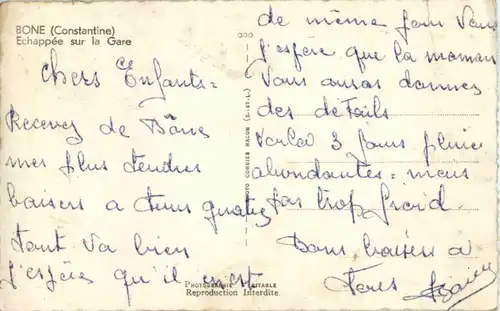 BONE (Constantine)
Echappée sur la Gare
Chers Enfants =
Recevez de Bône
mes plus tendres
baisers a tous quatre
tout va bien
j'espère qu'il en est
de même pour vous
j'espère que la maman
vous auras données
des détails
voilà 3 jours pluie
abondantes = mais
pas trop froid
Bons baisers a
tous
PHOTO COMBIER MACON (S.-ET-L.)
PHOTOGRAPHIE VERITABLE
Reproduction Interdite